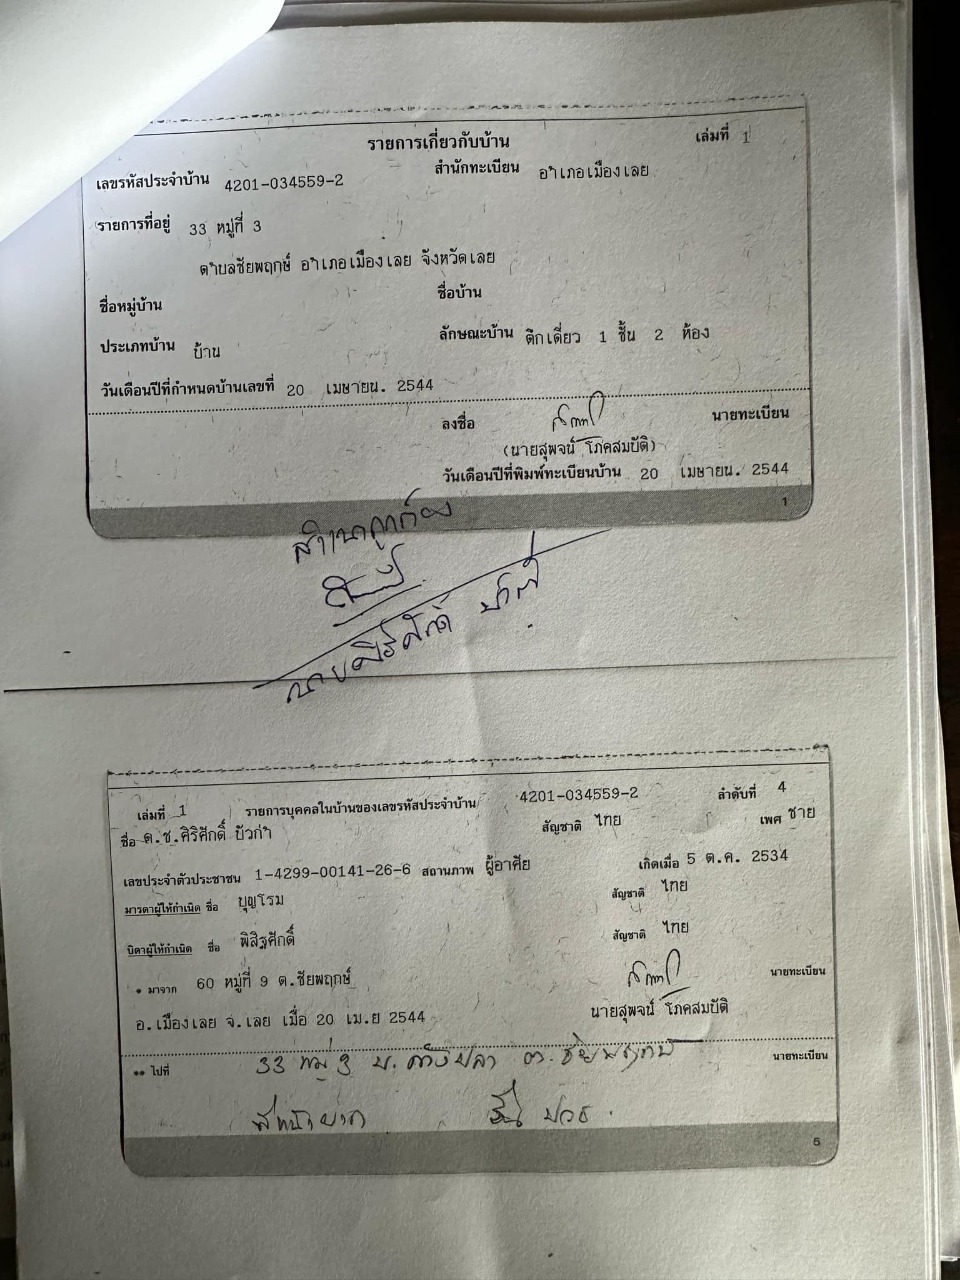 รายการเกี่ยวกับบ้าน เล่มที่ 1
เลขรหัสประจำบ้าน 4201-034559-2 สำนักทะเบียน อำเภอเมืองเลย
รายการที่อยู่ 33 หมู่ที่ 3
ตำบลชัยพฤกษ์ อำเภอเมืองเลย จังหวัดเลย
ชื่อหมู่บ้าน ชื่อบ้าน
ประเภทบ้าน บ้าน ลักษณะบ้าน ตึกเดี่ยว 1 ชั้น 2 ห้อง
วันเดือนปีที่กำหนดบ้านเลขที่ 20 เมษายน. 2544
ลงชื่อ นายทะเบียน
(นายสุพจน์ โภคสมบัติ)
วันเดือนปีที่พิมพ์ทะเบียนบ้าน 20 เมษายน. 2544
1
สำเนาถูกต้อง
เล่มที่ 1 รายการบุคคลในบ้านของเลขรหัสประจำบ้าน 4201-034559-2 ลำดับที่ 4
ชื่อ ด.ช.ศิริศักดิ์ บัวกำ สัญชาติ ไทย เพศ ชาย
เลขประจำตัวประชาชน 1-4299-00141-26-6 สถานภาพ ผู้อาศัย เกิดเมื่อ 5 ต.ค. 2534
มารดาผู้ให้กำเนิด ชื่อ บุญโรม สัญชาติ ไทย
บิดาผู้ให้กำเนิด ชื่อ พิสิฐศักดิ์ สัญชาติ ไทย
* มาจาก 60 หมู่ที่ 9 ต.ชัยพฤกษ์ นายทะเบียน
อ.เมืองเลย จ.เลย เมื่อ 20 เม.ย 2544 นายสุพจน์ โภคสมบัติ
** ไปที่ 33 หมู่ 3 ต. ชัยพฤกษ์ นายทะเบียน
5